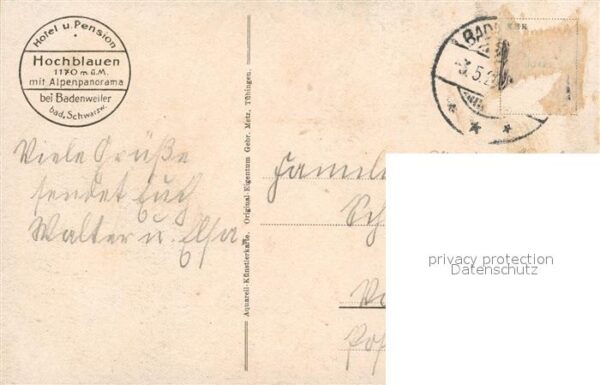 Hotel u. Pension
Hochblauen
1170 m ü.M.
mit Alpenpanorama
bei Badenweiler
bad. Schwarzw.
Viele Grüße
sendet Euch
Walter u. Elsa.
Aquarell-Künstlerkarte. Original-Eigentum Gebr. Metz, Tübingen.
-3.5.2
Familie
Sch
privacy protection
Datenschutz